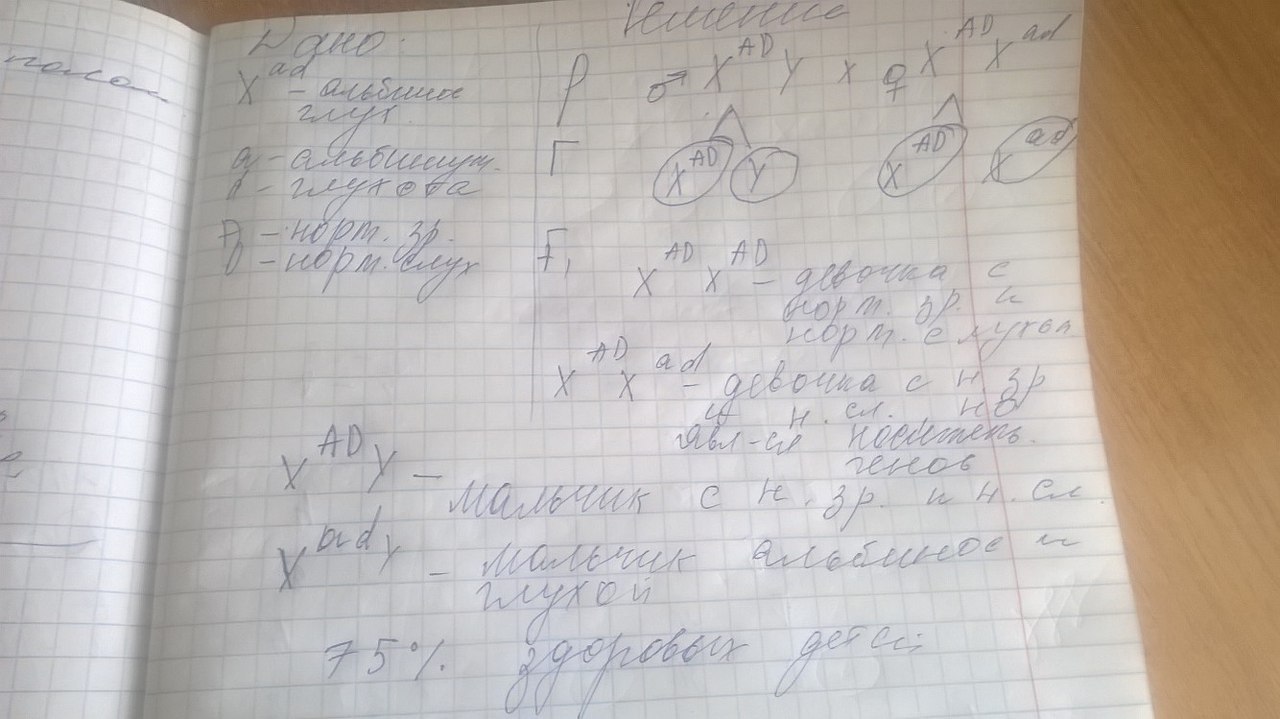 Дано:
X^ad – альбинос
глух.
a – альбинизм.
d – глухота
A – норм. зр.
D – норм. слух
Решение
P ♂ X^AD Y x ♀ X^AD X^ad
Г X^AD Y X^AD X^ad
F₁ X^AD X^AD – девочка с
норм. зр. и
норм. слухом
X^AD X^ad – девочка с н. зр
и н. сл. но
явл-ся носитель.
генов
X^AD Y – мальчик с н. зр. и н. сл.
X^ad Y – мальчик альбинос и
глухой
75% здоровых детей